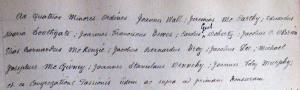 Ad Quatuor Minores Ordines Joannes Hall; Jeremias Mc Carthy; Eduardus
Maria Southgate; Joannes Franciscus Jones; Carolus Gul Doherty; Jacobus C. O'Brien
Bernardus McKenzie; Jacobus Bernardus Foy; Jacobus Fox; Michael
Josephus McGivney; Joannes Stanislaus Kennedy; Joannes Foley Murphy;
et e Congregatione Passionis iidem ac supra ad primam tonsuram.